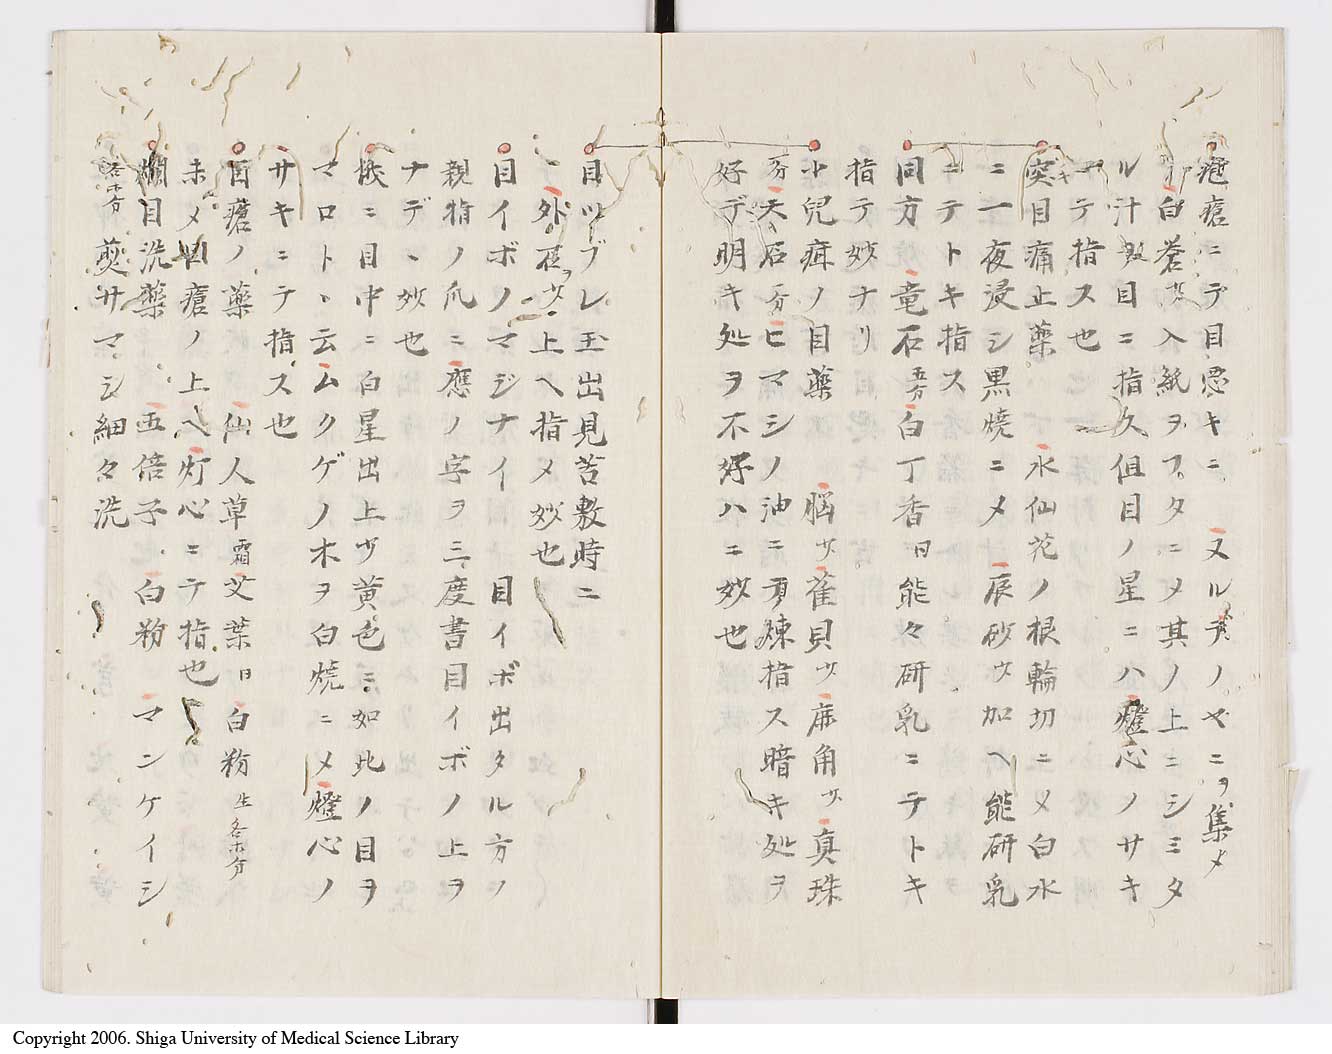 疱瘡ニテ目悪キニ 又ルデノヤニヲ集メ
白蒼少入紙ヲフタニメ其ノ上ニシミタ
ル汁取目ニ指久但目ノ星ニハ燈心ノサキ
ニテ指ス也
突目痛止薬 水仙花ノ根輪切ニメ白水
ニ一夜浸シ黒焼ニメ辰砂少加ヘ能研乳
ニテトキ指ス
同方 竜石五分白丁香日能々研乳ニテトキ
指テ妙ナリ
小兒疳ノ目薬 脳少雀貝少麻角少真珠
天石 ヒマシノ油ニテ煉指ス暗キ処ヲ
好デ明キ処ヲ不好ハニ妙也
目ツブレ玉出見苦敷時ニ
外 ヲ少上ヘ指メ妙也
目イボノマジナイ 目イボ出タル方ノ
親指ノ爪ニ應ノ字ヲ三度書目イボノ上ヲ
ナデヽ妙也
俄ニ目中ニ白星出上ヅ黄色ニ如此ノ目ヲ
マロトヽ云ムクゲノ木ヲ白焼ニメ燈心ノ
サキニテ指ス也
目瘡ノ薬 仙人草霜艾葉日白粉生各等分
未メ目瘡ノ上ヘ灯心ニテ指也
爛目洗薬 五倍子 白粉 マンケイシ
各等分煎サマシ細々洗
Copyright 2006. Shiga University of Medical Science Library